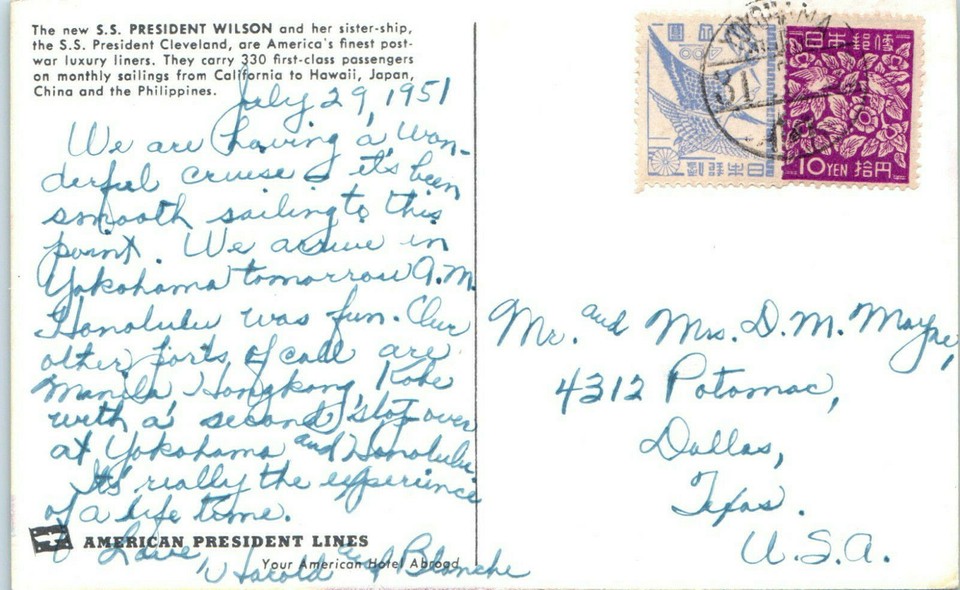 The new S.S. PRESIDENT WILSON and her sister-ship,
the S.S. President Cleveland, are America's finest post-
war luxury liners. They carry 330 first-class passengers
on monthly sailings from California to Hawaii, Japan,
China and the Philippines.
July 29, 1951
We are having a won-
derful cruise & it's been
smooth sailing to this
point. We arrive in
Yokohama tomorrow A.M.
Honolulu was fun. Our
other ports of call are
Manila Hongkong, Kobe
with a second stop over
at Yokohama and Honolulu.
It's really the experience
of a life time.
Love,
Harold and Blanche
AMERICAN PRESIDENT LINES
Your American Hotel Abroad
日本郵便
10 YEN 拾円
日本郵便
400
YOKOHAMA
31
Mr. and Mrs. D. M. Mayne,
4312 Potomac,
Dallas,
Texas.
U.S.A.